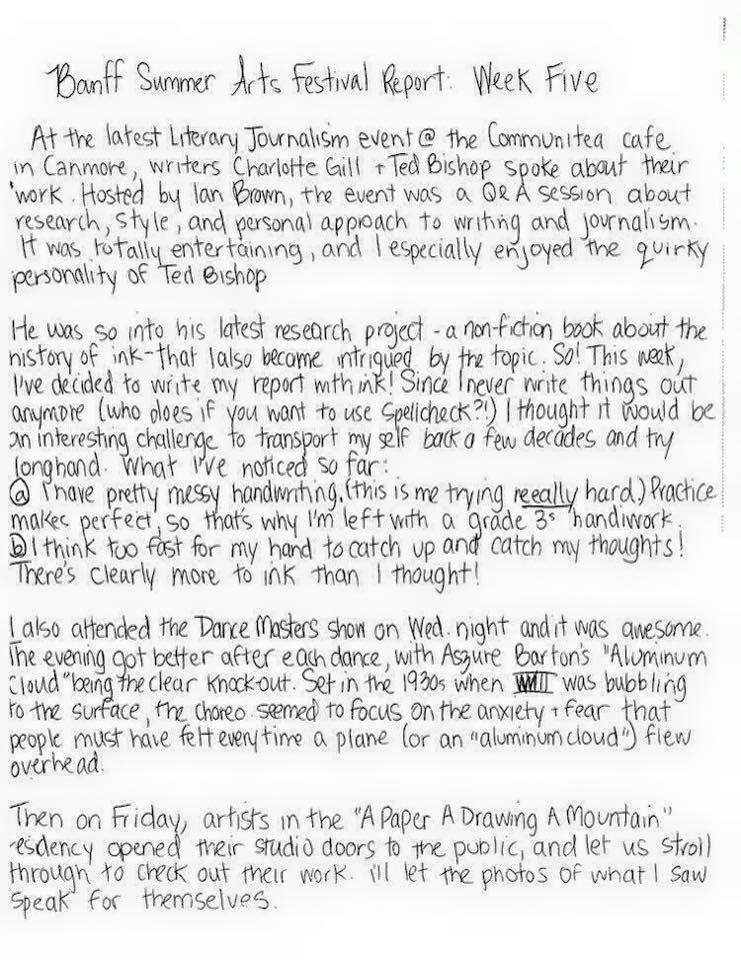 Banff Summer Arts Festival Report: Week Five
At the latest Literary Journalism event @ the Communitea cafe
in Canmore, writers Charlotte Gill + Ted Bishop spoke about their
work. Hosted by Ian Brown, the event was a Q&A session about
research, style, and personal approach to writing and journalism.
It was totally entertaining, and I especially enjoyed the quirky
personality of Ted Bishop
He was so into his latest research project - a non-fiction book about the
history of ink - that I also became intrigued by the topic. So! This week,
I've decided to write my report with ink! Since I never write things out
anymore (who does if you want to use Spellcheck?!) I thought it would be
an interesting challenge to transport my self back a few decades and try
longhand. What I've noticed so far:
a) I have pretty messy handwriting. (this is me trying reeally hard.) Practice
makes perfect, so that's why I'm left with a grade 3s handiwork.
b) I think too fast for my hand to catch up and catch my thoughts!
There's clearly more to ink than I thought!
I also attended the Dance Masters show on Wed. night and it was awesome.
The evening got better after each dance, with Aszure Barton's "Aluminum
Cloud" being the clear knock-out. Set in the 1930s when WWII was bubbling
to the surface, the choreo seemed to focus on the anxiety + fear that
people must have felt everytime a plane (or an "aluminum cloud") flew
overhead.
Then on Friday, artists in the "A Paper A Drawing A Mountain"
residency opened their studio doors to the public, and let us stroll
through to check out their work. i'll let the photos of what I saw
speak for themselves.